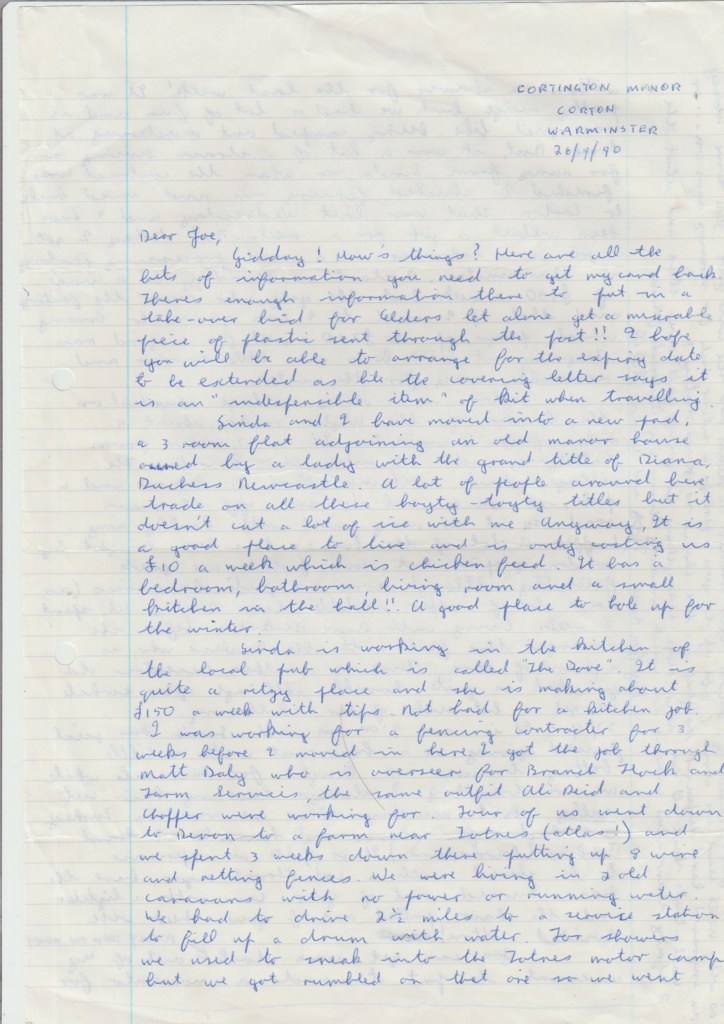 CORTINGTON MANOR
CORTON
WARMINSTER
26/9/90
Dear Joe,
Gidday! How's things? Here are all the
bits of information you need to get my card back.
Theres enough information there to put in a
take-over bid for Elders let alone get a miserable
piece of plastic sent through the post!! I hope
you will be able to arrange for the expiry date
to be extended as like the covering letter says it
is an "indespensible item" of kit when travelling.
Sinda and I have moved into a new pad,
a 3 room flat adjoining an old manor house
owned by a lady with the grand title of Diana,
Duchess Newcastle. A lot of people around here
trade on all these hoyty-toyty titles but it
doesn't cut a lot of ice with me. Anyway, It is
a good place to live and is only costing us
£10 a week which is chicken feed. It has a
bedroom, bathroom, living room and a small
kitchen in the hall!! A good place to hole up for
the winter.
Sinda is working in the kitchen of
the local pub which is called "The Dove". It is
quite a ritzy place and she is making about
£150 a week with tips. Not bad for a kitchen job.
I was working for a fencing contracter for 3
weeks before I moved in here. I got the job through
Matt Daly who is overseer for Branch Flock and
Farm Services, the same outfit Ali Reid and
Choffer were working for. Four of us went down
to Devon to a farm near Totnes (atlas!) and
we spent 3 weeks down there putting up 8 wire
and netting fences. We were living in 2 old
caravans with no power or running water.
We had to drive 2½ miles to a service station
to fill up a drum with water. For showers
we used to sneak into the Totnes motor camp
but we got rumbled on that one so we went